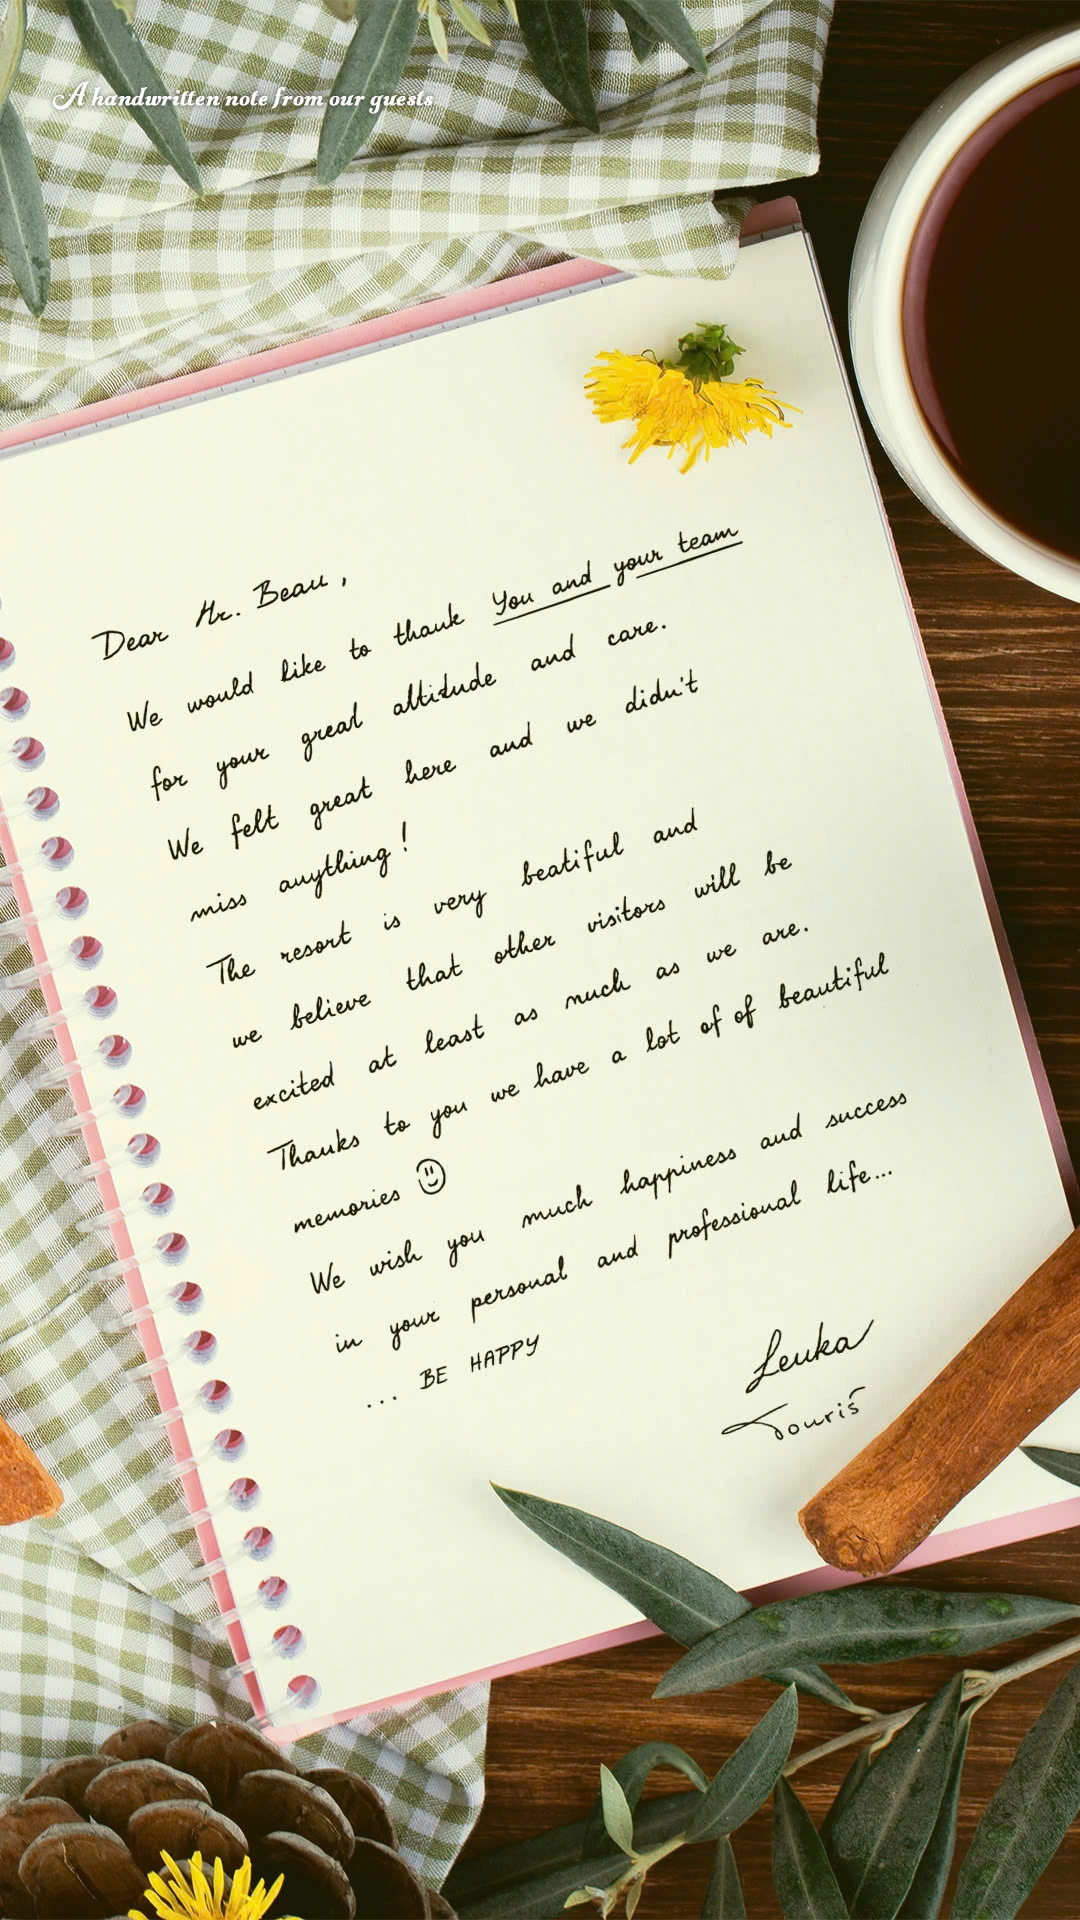 A handwritten note from our guests
Dear Mr. Beau,
We would like to thank You and your team
for your great attitude and care.
We felt great here and we didn't
miss anything!
The resort is very beatiful and
we believe that other visitors will be
excited at least as much as we are.
Thanks to you we have a lot of of beautiful
memories ☺
We wish you much happiness and success
in your personal and professional life...
... BE HAPPY
Lenka
Touriš